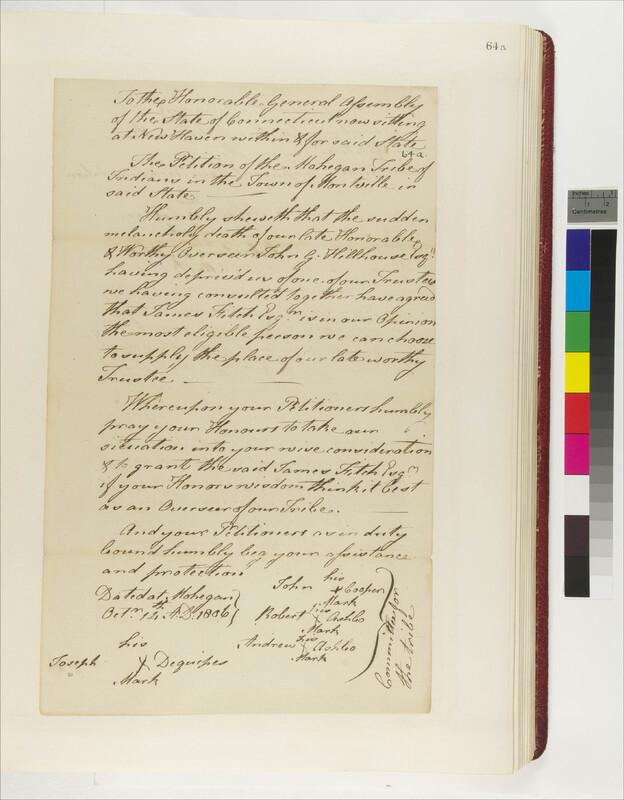 64a
To the Honorable General Assembly
of the State of Connecticut now sitting
at New Haven within & for said State
64a
The Petition of the Mohegan Tribe of
Indians in the Town of Montville in
said State
Humbly sheweth that the sudden
melancholy death of our late Honorable
& Worthy Overseer John G. Hillhouse Esqr
having depriv'd us of one of our Trustees
we having consulted together have agreed
that James Fitch Esqr is in our Opinion
the most eligible person we can choose
to supply the place of our late worthy
Trustee
Whereupon your Petitioners humbly
pray your Honours to take our
situation into your wise consideration
& to grant the said James Fitch Esqr
if your Honors wisdom think it best
as an Overseer of our Tribe.
And your Petitioners as in duty
bound humbly beg your assistance
and protection
Dated at Mohegan
Octr 14th A.D. 1806
John his X Cooper
Mark
Robert his X Ashbo
Mark
Andrew his X Ashbo
Mark
Joseph his X Dequipes
Mark
Committee for
the tribe
Inches
Centimetres